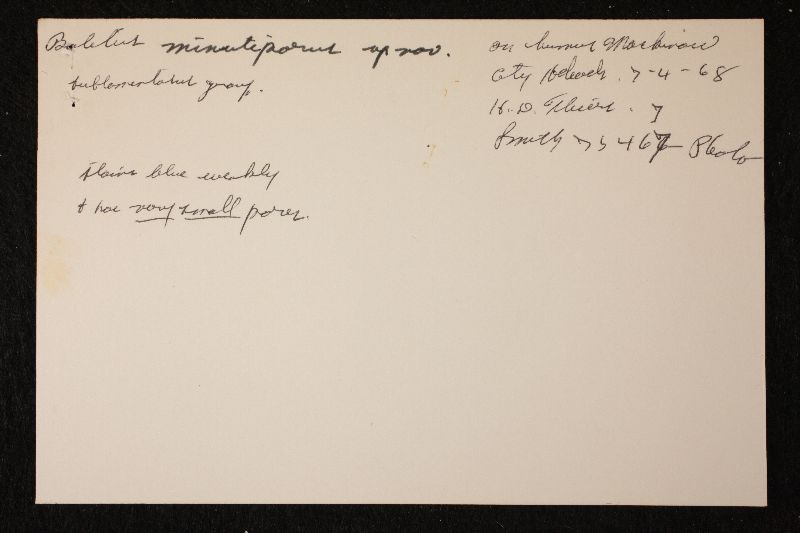 Boletus minutiporus sp nov.
subtomentosus group.
on humus Mackinaw
City Hdwds. 7-4-68
H. D. Thiers.
Smith 75467 Photo
stains blue weakly
& has very small pores.